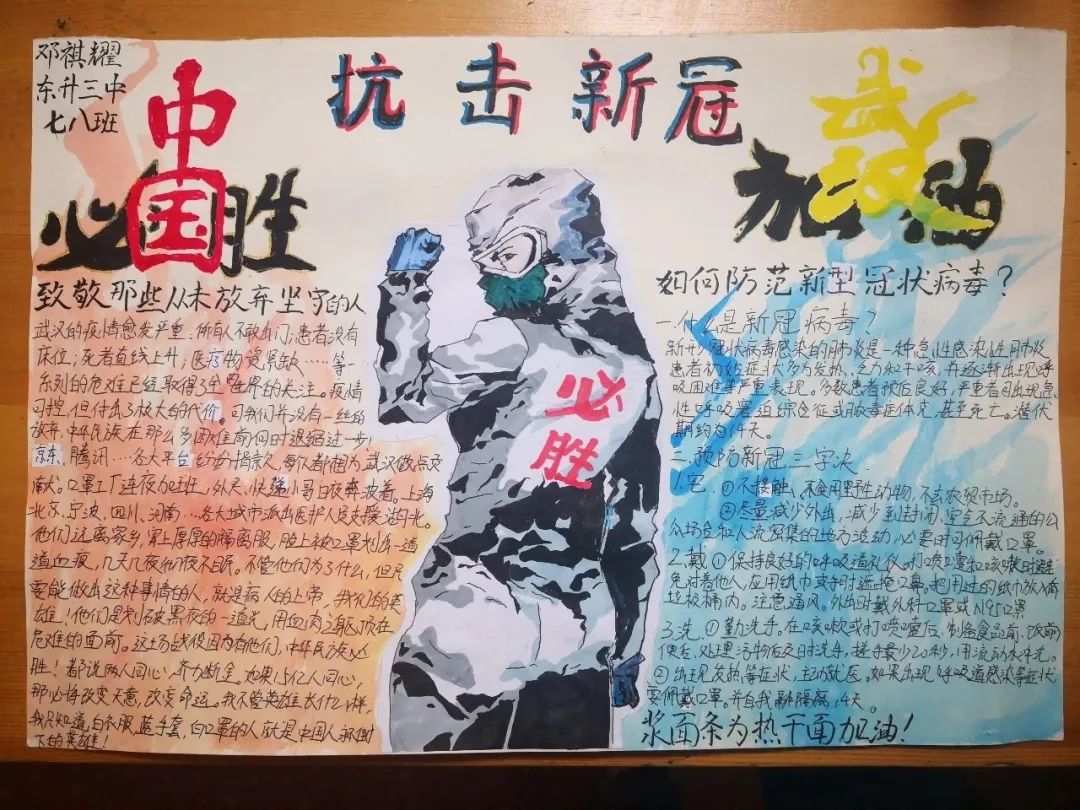 邓祺耀
东升三中
七八班
抗击新冠
中国
必胜
武汉
加油
必胜
致敬那些从未放弃坚守的人
武汉的疫情愈发严重：所有人不敢出门；患者没有
床位；死者直线上升；医疗物资紧缺……等一
系列的危难已经取得了全世界的关注。疫情
可控，但付出了极大的代价。可我们并没有一丝的
放弃，中华民族在那么多困难前何时退缩过一步！
京东、腾讯……各大平台纷纷捐款，每个都相为武汉做点交
献。口罩工厂连夜加班，外卖、快递小哥日夜奔波着。上海
北京、宁波、四川、河南……各大城市派出医护人员支援湖北。
他们远离家乡，穿上厚厚的隔离服，脸上被口罩利乐一道
道血痕，几天几夜彻夜不眠。不管他们为了什么，但只
要能做出这种事情的人，就是病人的上帝，我们的英
雄！他们是划破黑夜的一道光，用血肉之躯顶在
危难的面前。这场战役因为有他们，中华民族必
胜！都说两人同心，齐力断金，如果15亿人同心，
那必将改变天意，改变命运。我不管英雄长什么样，
我只知道，白衣服，蓝手套，白口罩的人就是中国人
下的英雄！
如何防范新型冠状病毒？
一.什么是新冠病毒？
新型冠状病毒感染的肺炎是一种急性感染性肺炎
患者初始症状多为发热、乏力和干咳，并逐渐出现呼
吸困难等严重表现。多数患者预后良好，严重者可出现急
性呼吸窘迫综合征或脓毒症休克，甚至死亡。潜伏
期约为14天。
二.预防新冠三字决
1.宅 ①不接触、不食用野生动物，不去农贸市场。
②尽量减少外出，减少到封闭、空气不流通的公
众场合和人流密集的地方活动，必要时可佩戴口罩。
2.戴 ①保持良好的呼吸道礼仪，打喷嚏和咳嗽时避
免对着他人，应用纸巾或手肘遮掩口鼻。把用过的纸巾放入有
垃圾桶内。注意通风。外出时戴外科口罩或N95口罩
3.洗 ①勤洗手。在咳嗽或打喷嚏后、制备食品前、饭前
便后、处理污物后及时洗手，搓手最少20秒，用流动水冲洗。
②出现发热等症状，主动就医。如果出现呼吸道感染等症状，
要佩戴口罩。并自我隔离14天。
浆面条为热干面加油！